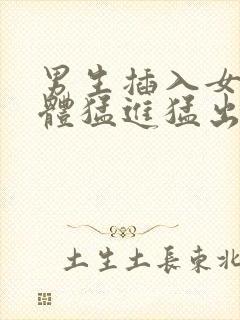 男生插入女
體猛進猛出
土生土長東北